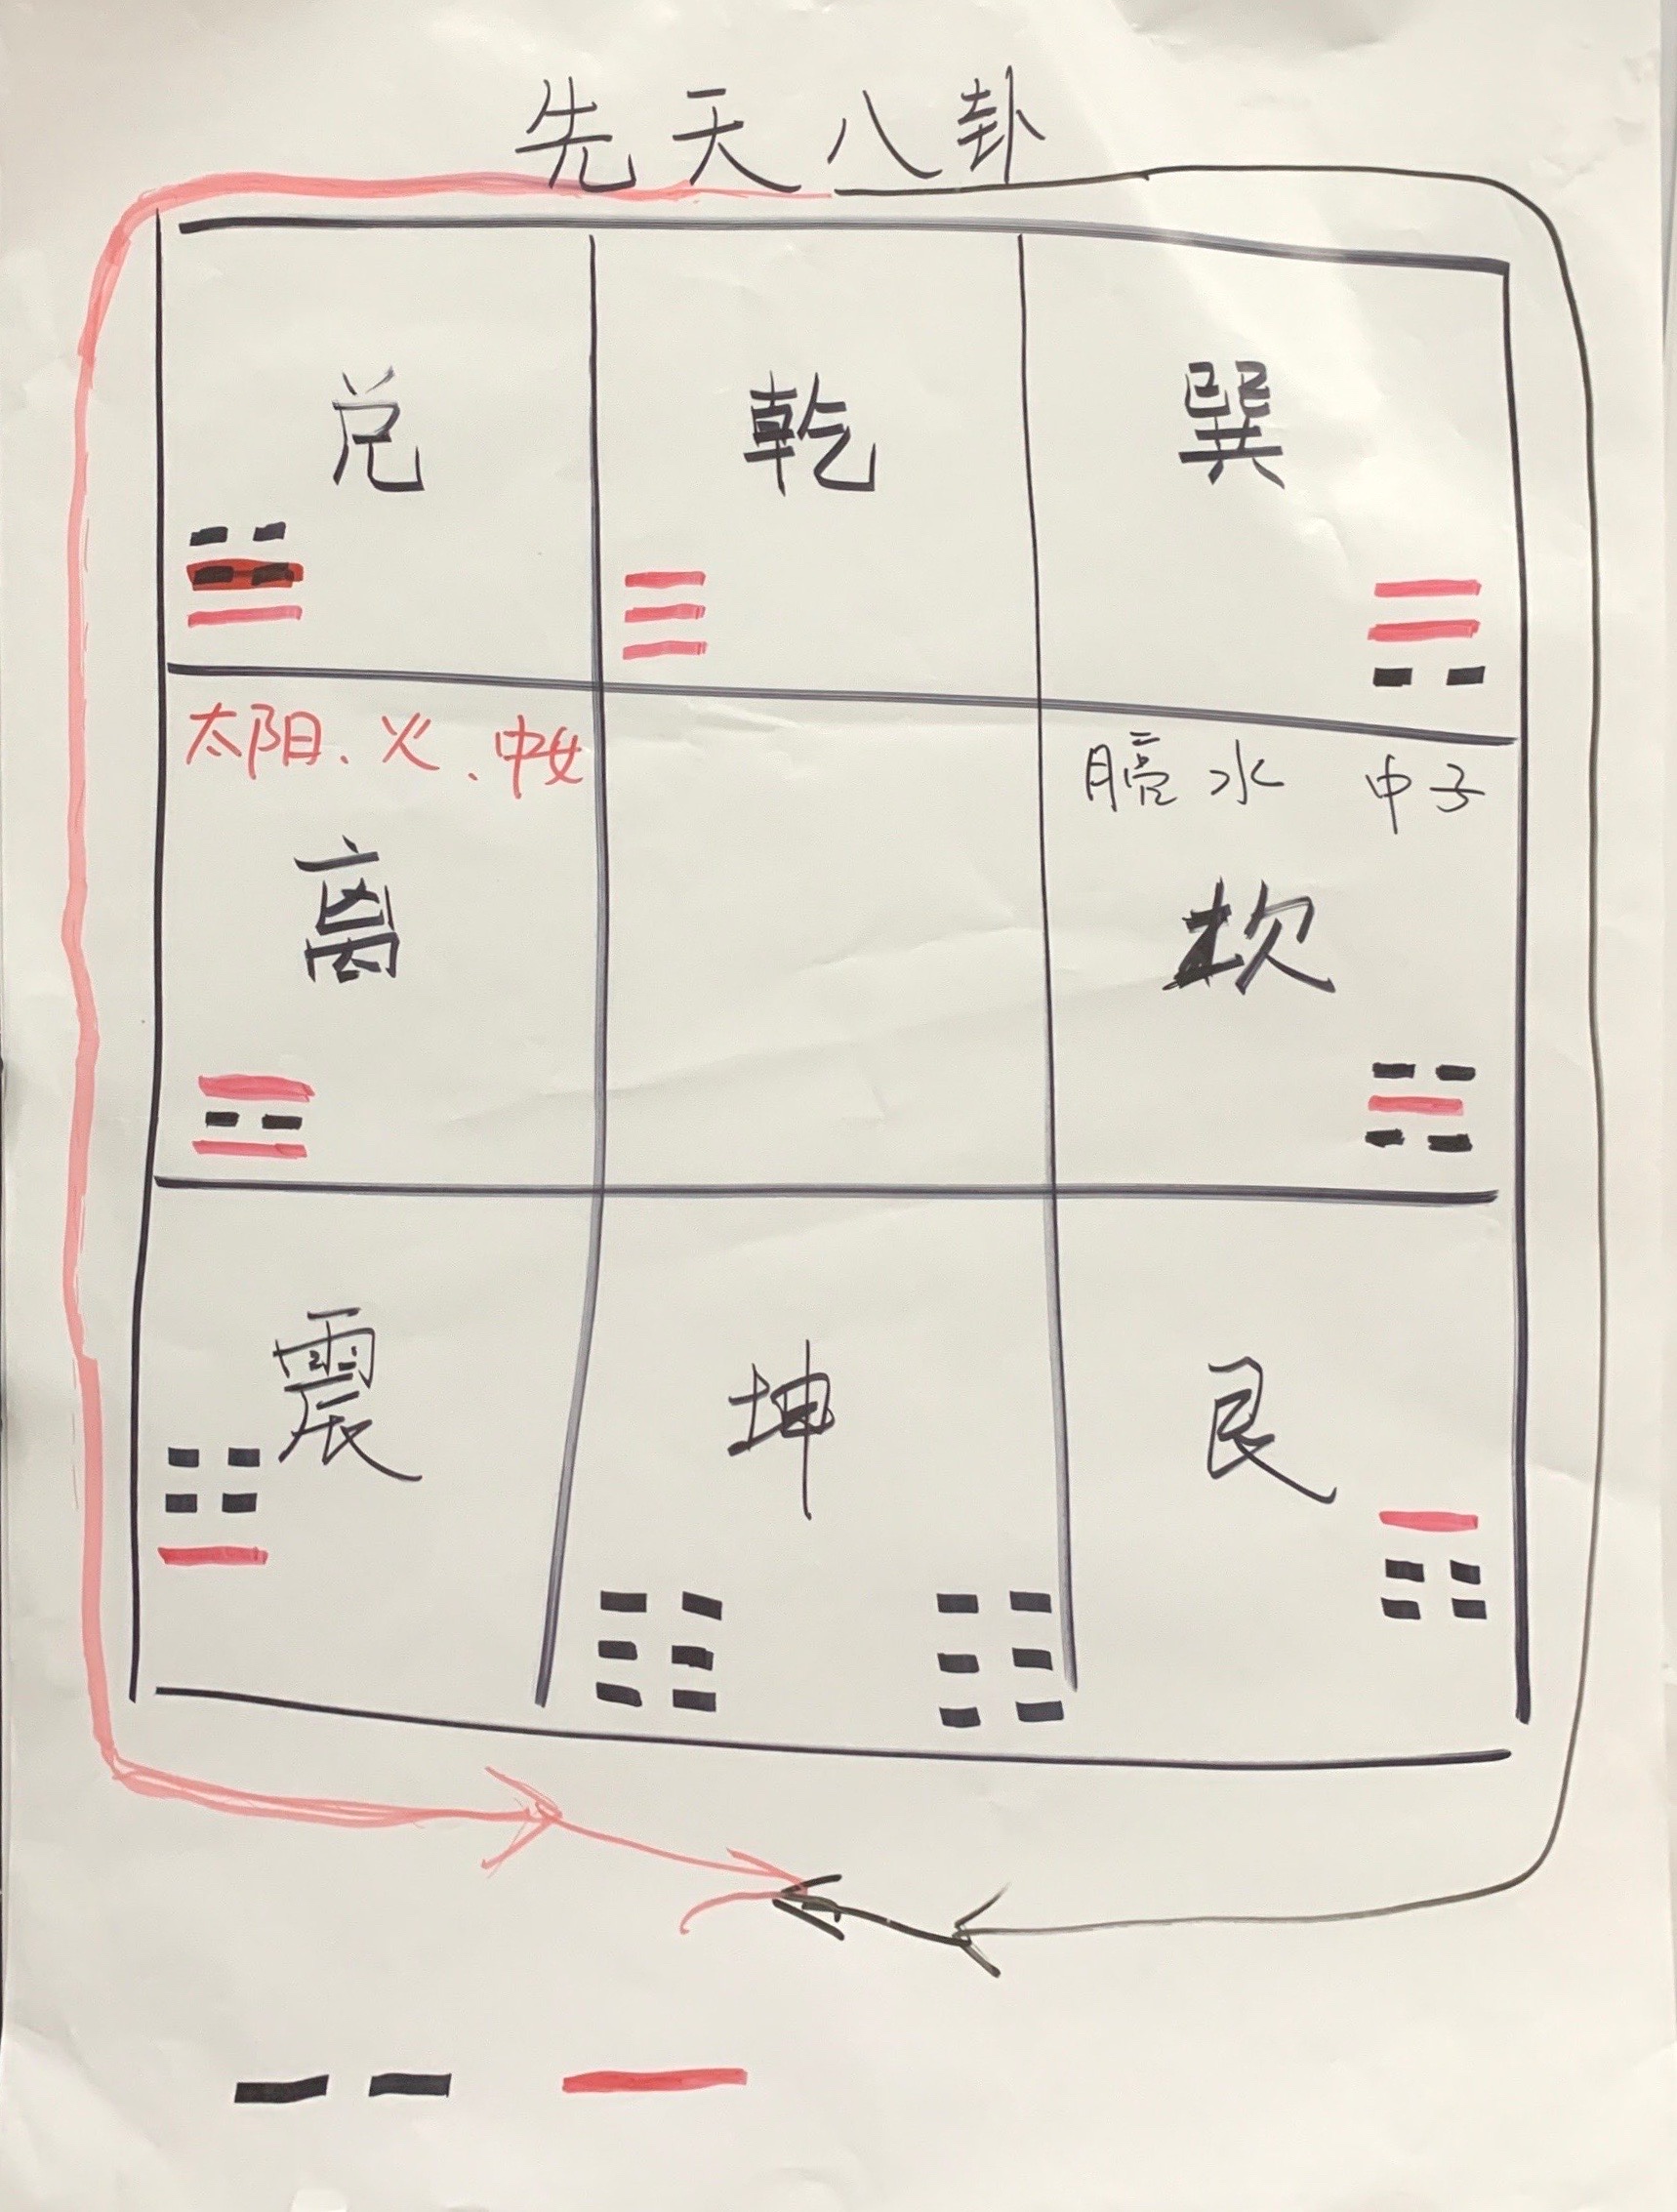 先天八卦
兑 乾 巽
太阳、火、中女
水 中子
离
震 坤 艮